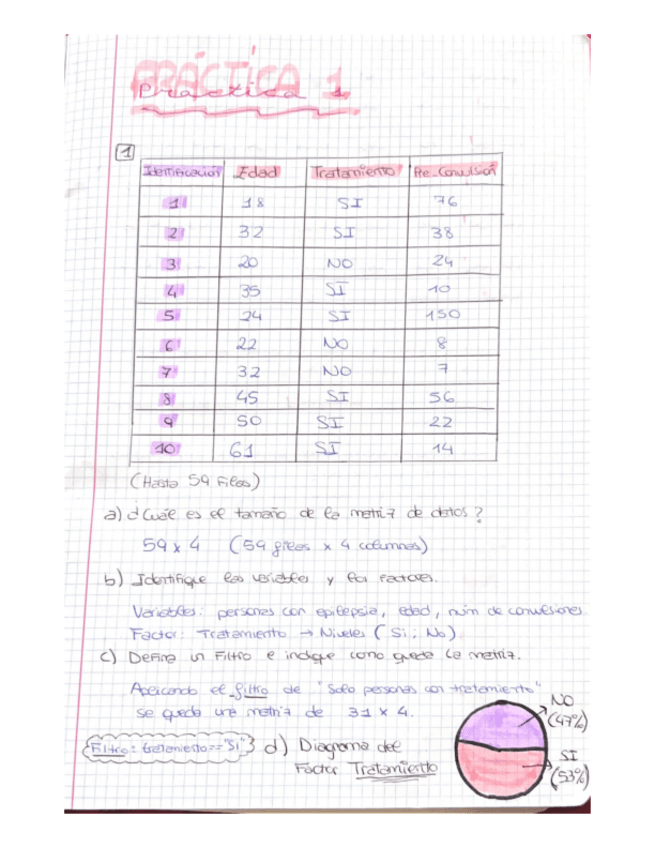 PRÁCTICA 1
Práctica 1
1
Identificación Edad Tratamiento Pre_Convulsión
1 18 SI 76
2 32 SI 38
3 20 NO 24
4 35 SI 10
5 24 SI 150
6 22 NO 8
7 32 NO 7
8 45 SI 56
9 50 SI 22
10 61 SI 14
(Hasta 59 Filas)
a) ¿Cuál es el tamaño de la matriz de datos?
59 x 4 (59 filas x 4 columnas)
b) Identifique las variables y los factores.
Variables: personas con epilepsia, edad, núm de convulsiones
Factor: Tratamiento → Niveles (Si ; No)
c) Defina un Filtro e indique como queda la matriz.
Aplicando el filtro de "Solo personas con tratamiento"
se queda una matriz de 31 x 4.
Filtro: tratamiento == "Si"
d) Diagrama del
Factor Tratamiento
NO
(47%)
SI
(53%)